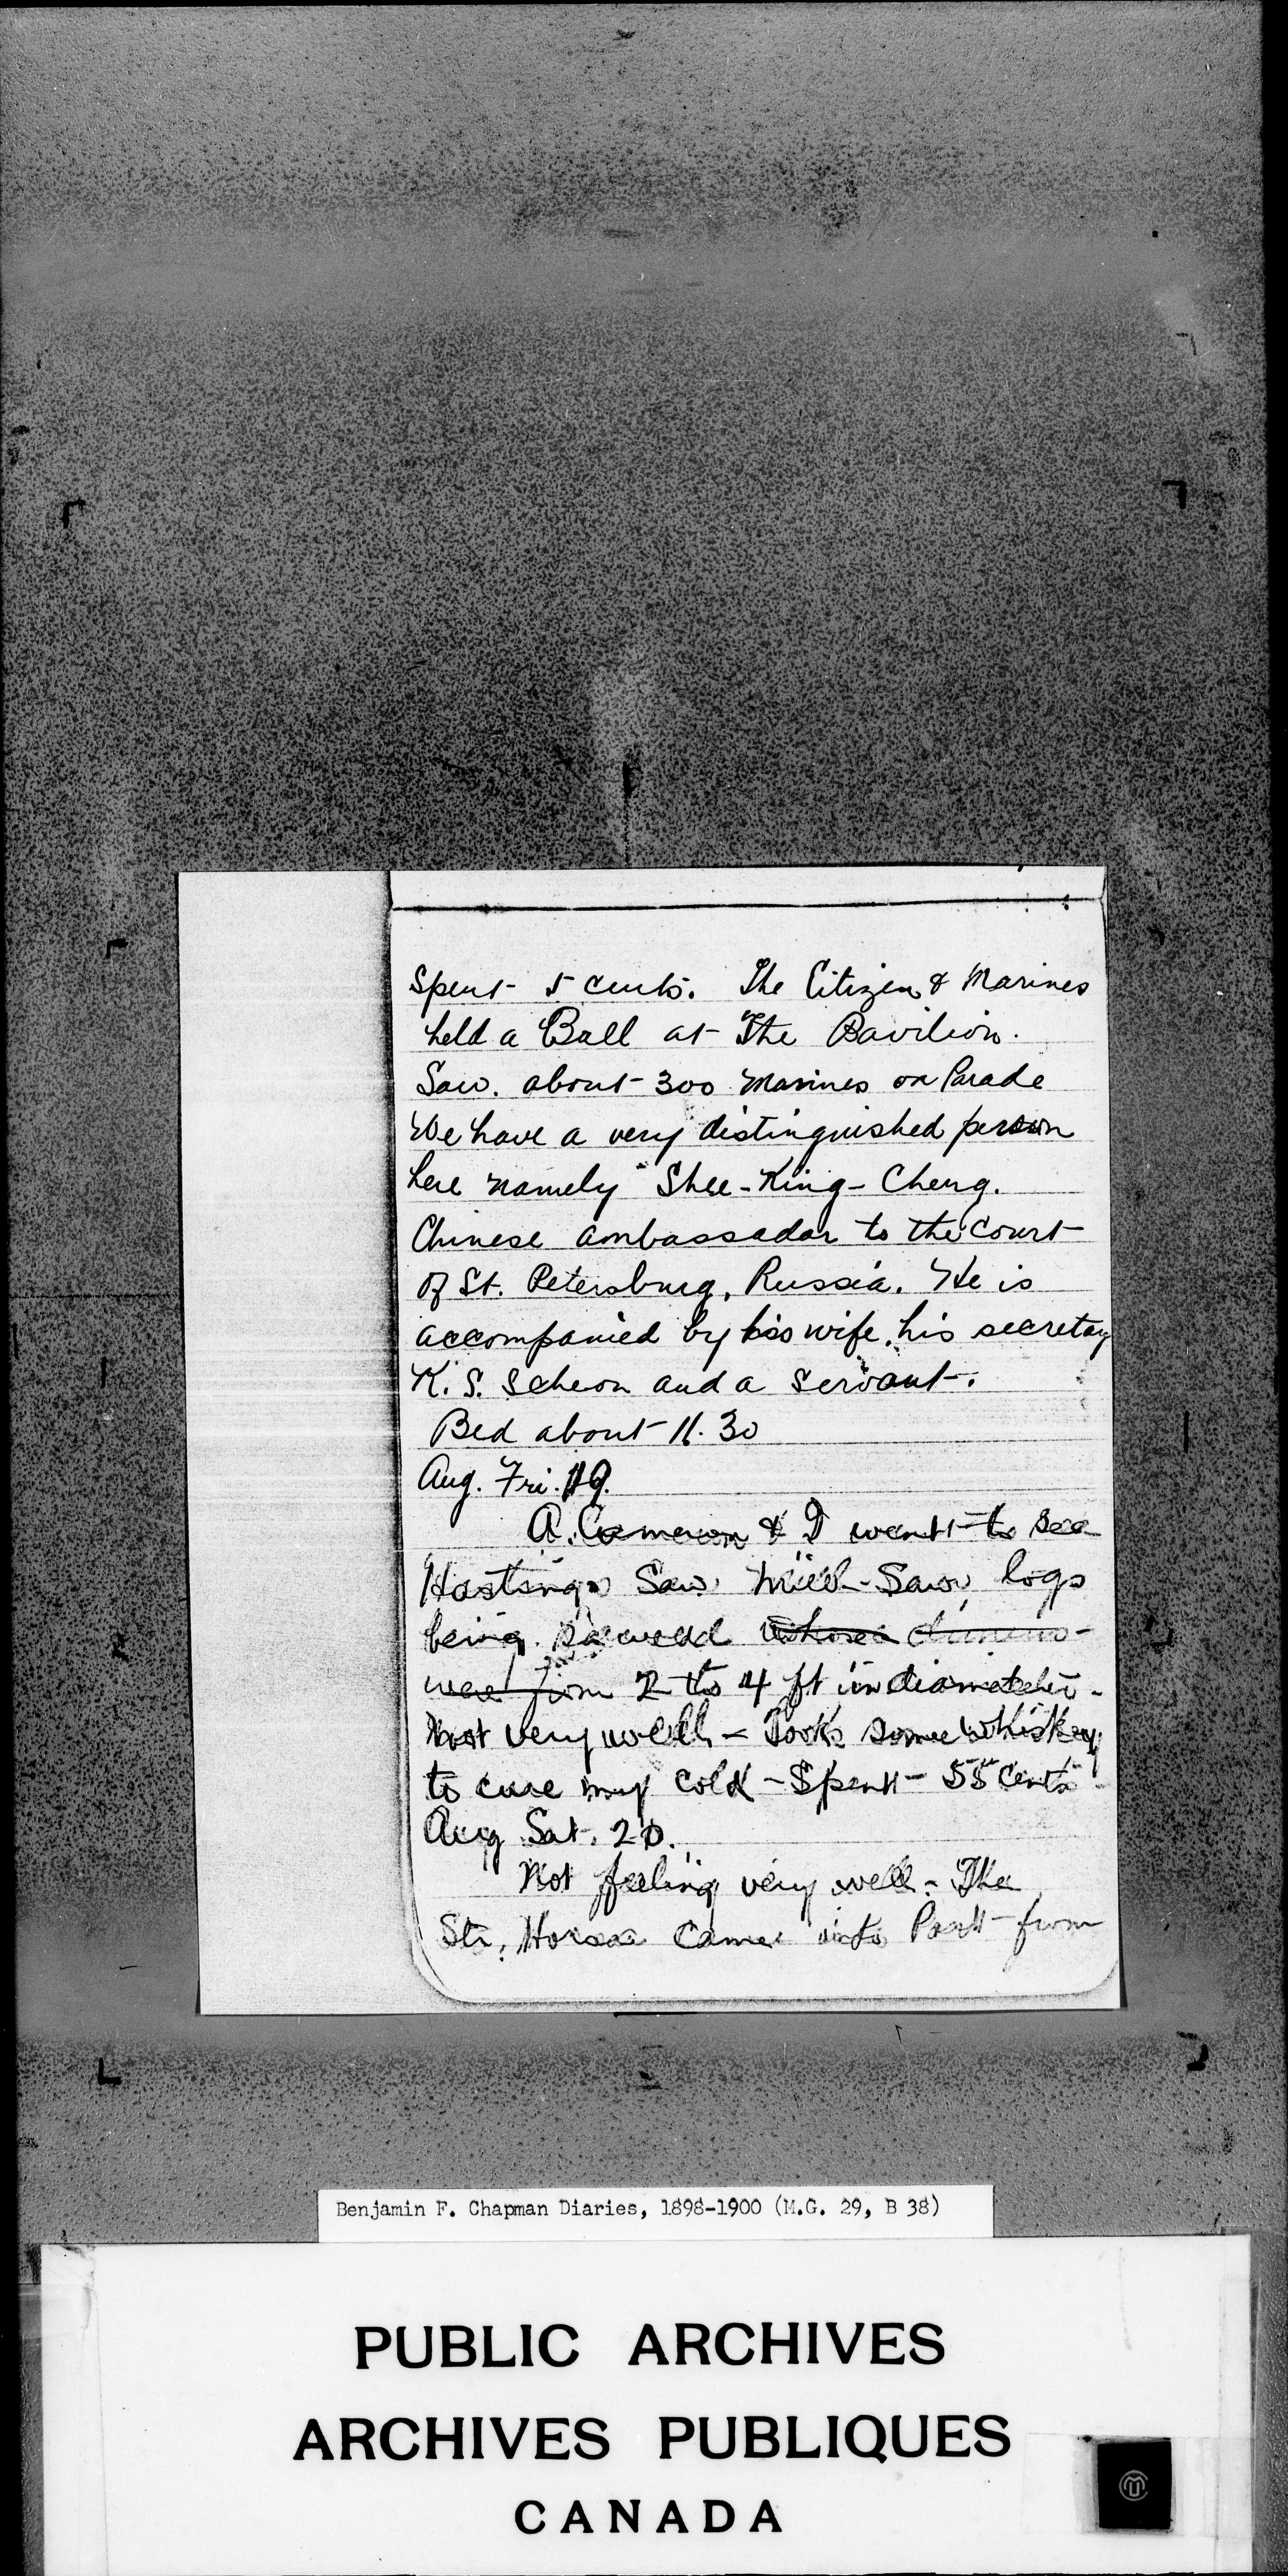 Spent 5 cents. The Citizen & Marines
held a Ball at The Pavilion.
Saw. about 300 Marines on Parade
We have a very distinguished person
here namely Shee-King-Cheng.
Chinese ambassador to the court
of St. Petersburg, Russia. He is
accompanied by his wife, his secretary
K. S. Scheon and a servant.
Bed about 11.30
Aug. Fri. 19.
A. Cameron & I went to see
Hastings Saw Mill - Saw logs
being sawed whose
were from 2 to 4 ft in diameter -
Not very well - Took some whiskey
to cure my cold - Spent - 55 cents -
Aug Sat. 20.
Not feeling very well - The
Str. came into Port from
Benjamin F. Chapman Diaries, 1898-1900 (M.G. 29, B 38)
PUBLIC ARCHIVES
ARCHIVES PUBLIQUES
CANADA